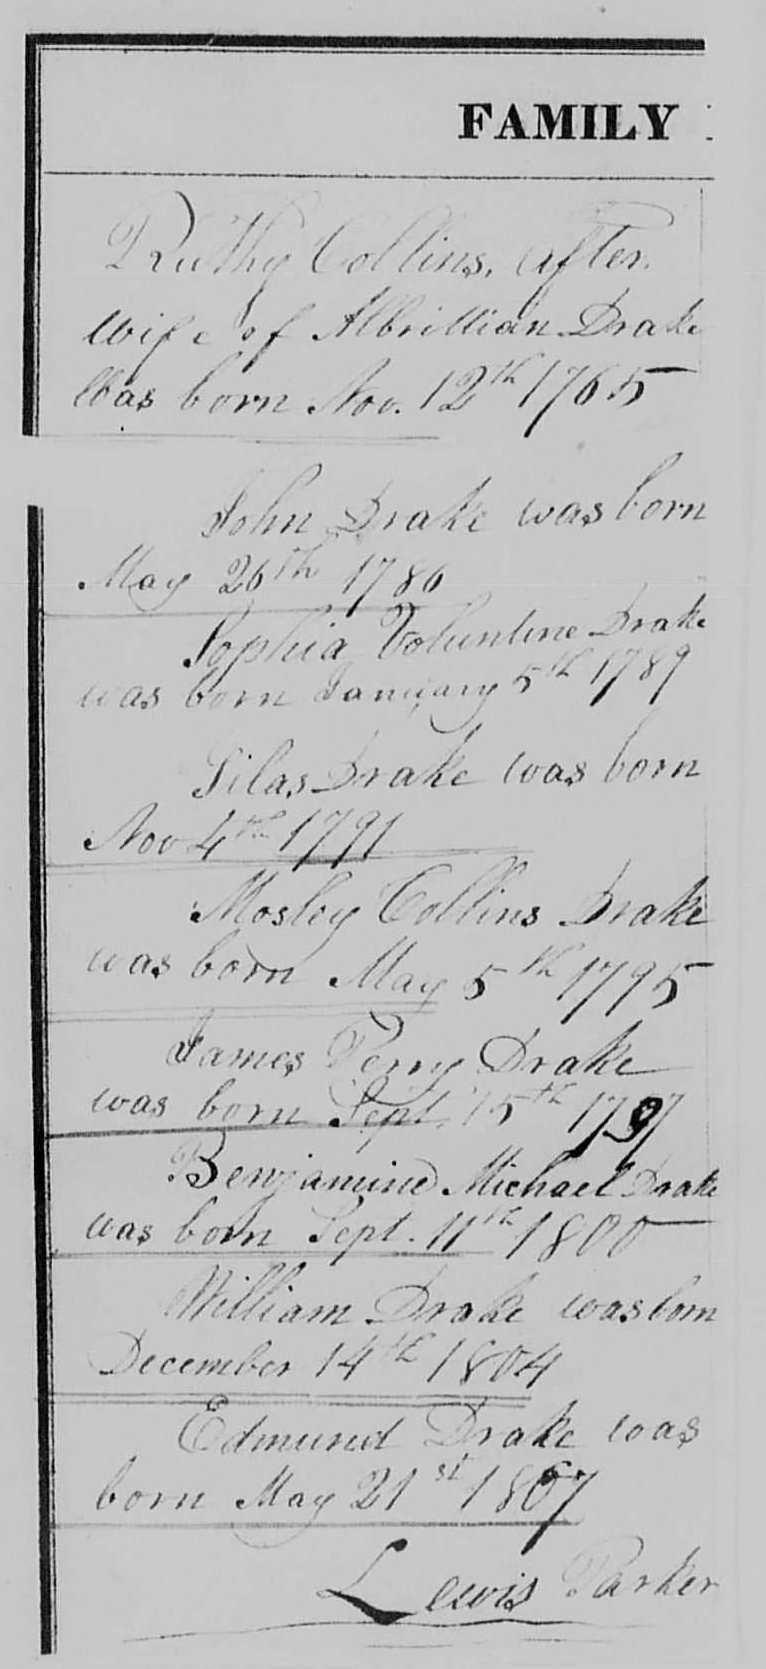 FAMILY
Ruthy Collins, after
wife of Albrittian Drake
Was born Nov. 12th 1765
John Drake was born
May 26th 1786
Sophia Voluntine Drake
was born January 5th 1789
Silas Drake was born
Nov 4th 1791
Mosley Collins Drake
was born May 5th 1795
James Perry Drake
was born Sept. 15th 1797
Benjamine Michael Drake
was born Sept. 11th 1800
William Drake was born
December 14th 1804
Edmund Drake was
born May 21st 1807
Lewis Parker